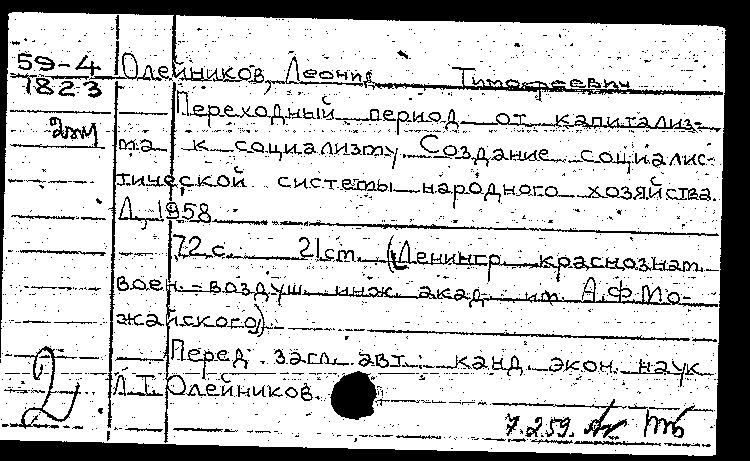 59-4 Олейников, Леонид Тимофеевич
1823
Переходный период от капитализ-
2экз
ма к социализму. Создание социалис-
тической системы народного хозяйства.
Л., 1958
72 с. 21 см. (Ленингр. краснознам.
воен.-воздуш. инж. акад. им. А.Ф. Мо-
жайского).
Перед загл. авт.: канд. экон. наук
Л.Т. Олейников.
2.
7.2.59.